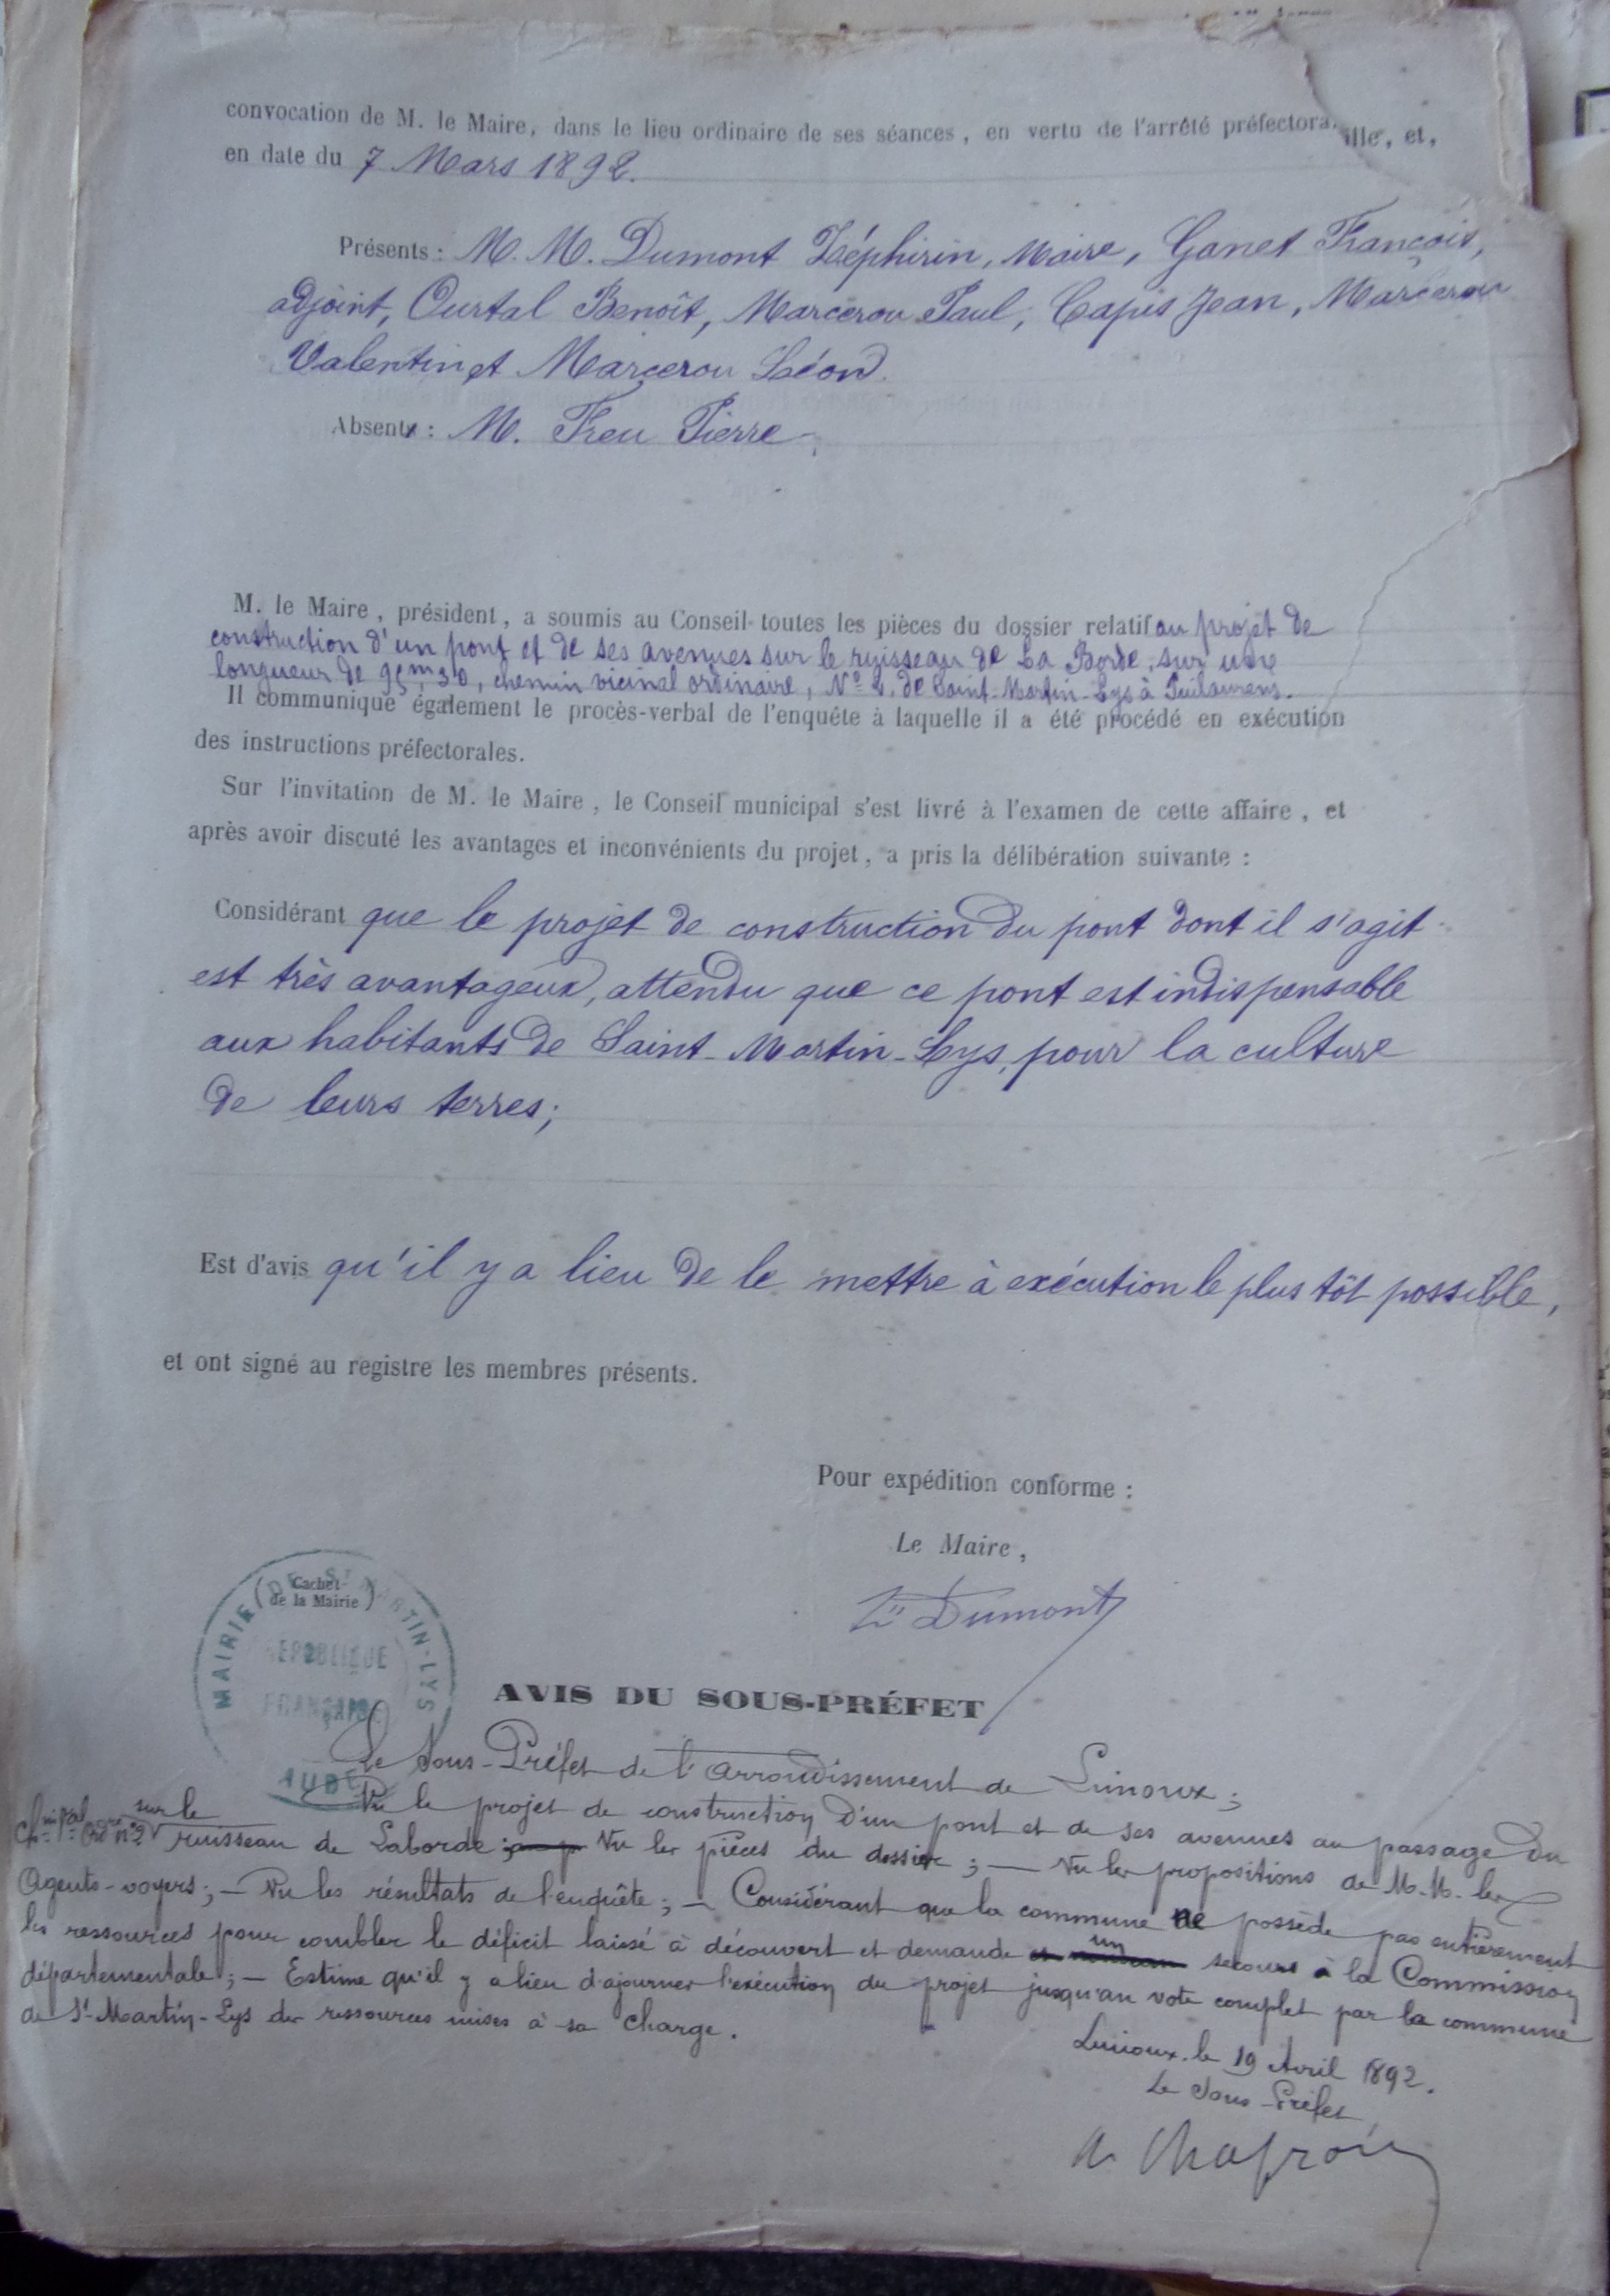 convocation de M. le Maire, dans le lieu ordinaire de ses séances, en vertu de l'arrêté préfectora
ille, et,
en date du 7 Mars 1892.
Présents : M. M. Dumont Zéphirin, Maire, Ganet François,
adjoint, Ourtal Benoît, Marcerou Paul, Capis Jean, Marcerou
Valentin et Marcerou Léon.
Absents : M. Freu Pierre.
M. le Maire, président, a soumis au Conseil toutes les pièces du dossier relatif au projet de
construction d'un pont et de ses avenues sur le ruisseau de La Borde, sur une
longueur de 95m,30, chemin vicinal ordinaire, No 2, de Saint-Martin-Lys à Puilaurens.
Il communique également le procès-verbal de l'enquête à laquelle il a été procédé en exécution
des instructions préfectorales.
Sur l'invitation de M. le Maire, le Conseil municipal s'est livré à l'examen de cette affaire, et
après avoir discuté les avantages et inconvénients du projet, a pris la délibération suivante :
Considérant que le projet de construction du pont dont il s'agit
est très avantageux, attendu que ce pont est indispensable
aux habitants de Saint-Martin-Lys, pour la culture
de leurs terres;
Est d'avis qu'il y a lieu de le mettre à exécution le plus tôt possible,
et ont signé au registre les membres présents.
Pour expédition conforme :
Le Maire,
Zin Dumont
(Cachet
de la Mairie)
MAIRIE DE ST MARTIN-LYS
RÉPUBLIQUE
FRANÇAISE
AUDE
AVIS DU SOUS-PRÉFET
Le Sous-Préfet de l'arrondissement de Limoux;
Vu le projet de construction d'un pont et de ses avenues au passage du
chin val ordre n°2 sur le ruisseau de Laborde; Vu les pièces du dossier; — Vu les propositions de M.M. les
Agents-voyers; — Vu les résultats de l'enquête; — Considérant que la commune ne possède pas entièrement
les ressources pour combler le déficit laissé à découvert et demande un secours à la Commission
départementale; — Estime qu'il y a lieu d'ajourner l'exécution du projet jusqu'au vote complet par la commune
de St-Martin-Lys des ressources mises à sa charge.
Limoux, le 19 Avril 1892.
Le Sous-Préfet